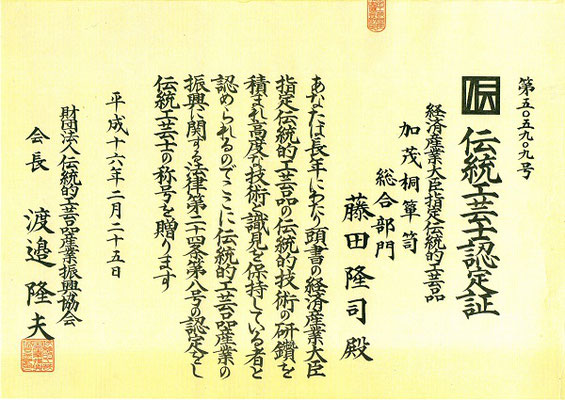 第五〇五九〇九号
伝
伝統工芸士認定証
経済産業大臣指定伝統的工芸品
加茂桐簞笥
総合部門
藤田隆司殿
あなたは長年にわたり頭書の経済産業大臣
指定伝統的工芸品の伝統的技術の研鑽を
積まれ高度な技術と識見を保持している者と
認められるのでここに伝統的工芸品産業の
振興に関する法律第二十四条第八号の認定をし
伝統工芸士の称号を贈ります
平成十六年二月二十五日
財団法人伝統的工芸品産業振興協会
会長 渡邉隆夫